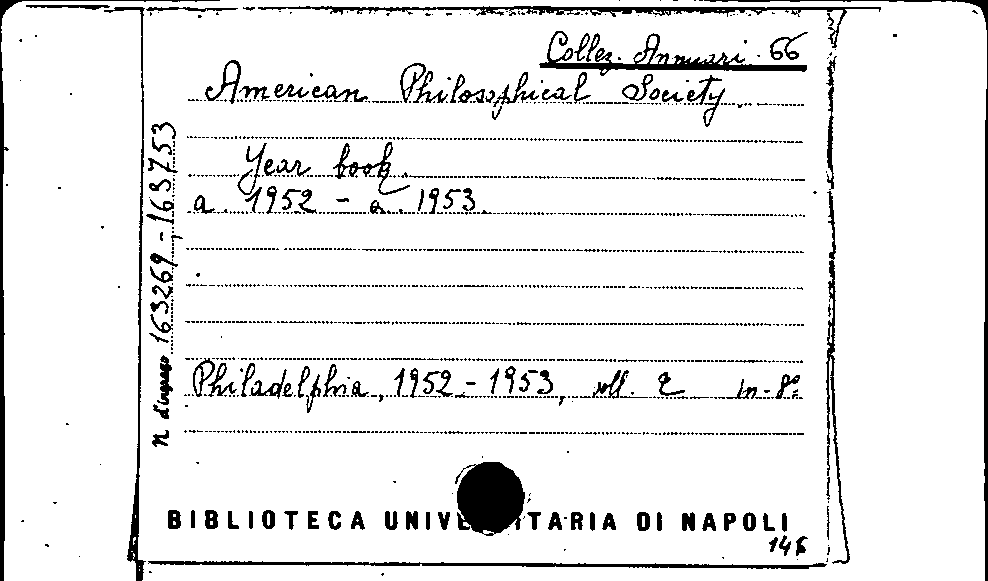 Collez. Annuari. 66
American Philosophical Society.
Year book.
a. 1952 - a. 1953.
n. d'ingresso 163269 - 163753
Philadelphia, 1952 - 1953, voll. 2 in-8°
BIBLIOTECA UNIVE ITARIA DI NAPOLI